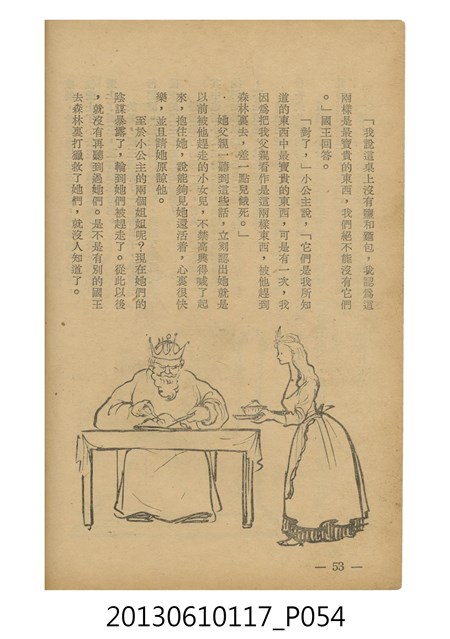 「我說這桌上沒有鹽和麵包，我認爲這
兩樣是最寶貴的東西，我們絕不能沒有它們
。」國王回答。
「對了，」小公主說，「它們是我所知
道的東西中最寶貴的東西，可是有一次，我
因爲把我父親看作是這兩樣東西，被他趕到
森林裏去，差一點兒餓死。」
她父親一聽到這些話，立刻認出她就是
以前被他趕走的小女兒，不禁高興得喊了起
來，抱住她，說能夠見她還活着，心裏很快
樂，並且請她原諒他。
至於小公主的兩個姐姐呢？現在她們的
陰謀暴露了，輪到她們被趕走了。從此以後
，就沒有再聽到過她們。是不是有別的國王
去森林裏打獵救了她們，就沒人知道了。
— 53 —
20130610117_P054